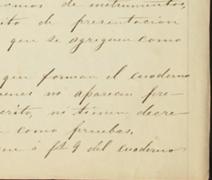 de instrumentos,
ito de presentacion
que se agreguen como
que forman el cuaderno
enes no aparecen pre-
crito, ni tienen decre-
como pruebas,
que á f 2 9 del cuaderno